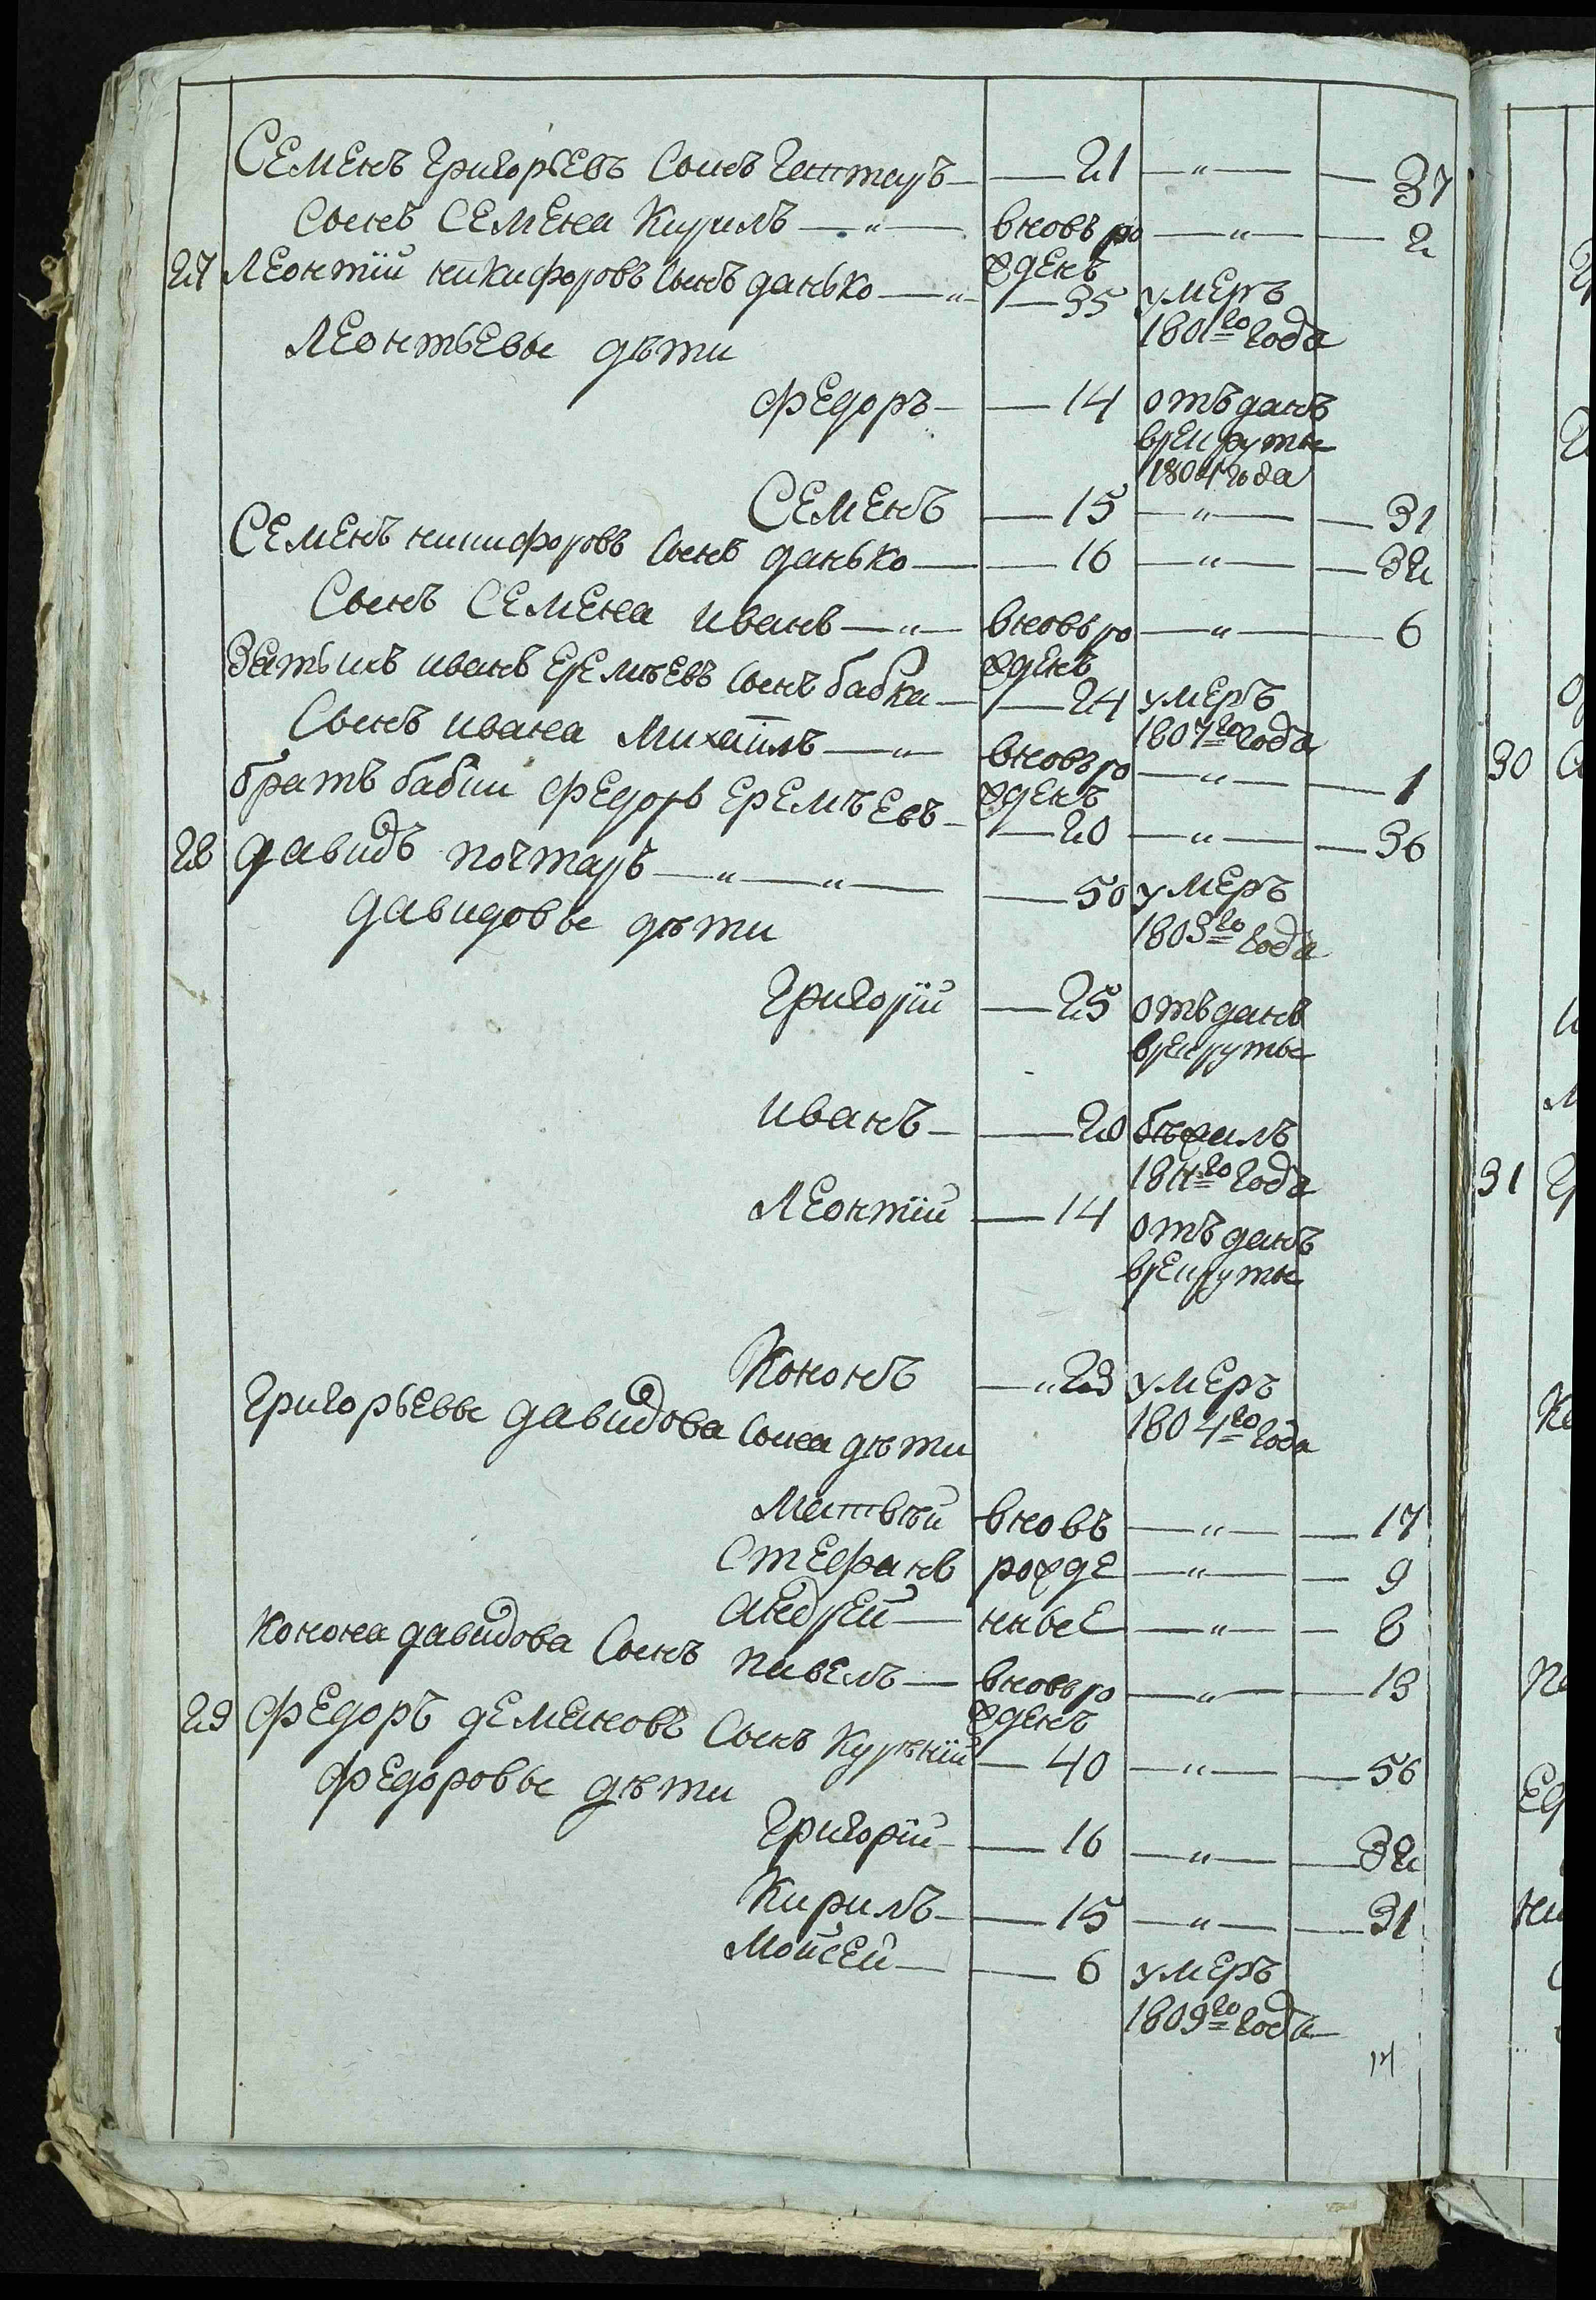 Семенъ Григорьевъ сынъ Гатшаръ — 21 — „ — 37
Сынъ Семена Кирилъ — „ — вновь ро — „ — 2
жденъ
27 Леонтій никифоровъ сынъ данько — „ — 35 умеръ
1801го года
Леонтьевы дѣти
Федоръ — 14 отъданъ
врекруты
1804 года
Семенъ — 15 — „ — 31
Семенъ никифоровъ сынъ данько — 16 — „ — 32
Сынъ Семена иванъ — „ — вновь ро — „ — 6
жденъ
Зять ихъ иванъ Еремѣевъ сынъ бабка — 24 умеръ
1807го года
Сынъ ивана Михаилъ — „ вновь ро — „ — 1
жденъ
братъ бабки Федоръ Еремѣевъ — 20 — „ — 36
28 давидъ почтаръ — „ — „ — 50 умеръ
1803го года
давидовы дѣти
Григорій — 25 отъданъ
врекруты
иванъ — 20 бѣжалъ
1811го года
Леонтій — 14 отъданъ
врекруты
Кононъ — „ 23 умеръ
1804го года
Григорьевы давидова сына дѣти
Матвѣй вновь — „ — 17
Стефанъ рожде — „ — 9
андрей — нные — „ — 8
Конона давидова сынъ павелъ — вновь ро — „ — 13
жденъ
29 Федоръ деменовъ сынъ — 40 — „ — 56
Федоровы дѣти
Григорій — 16 — „ — 32
Кирилъ — 15 — „ — 31
Мойсей — 6 умеръ
1809го года